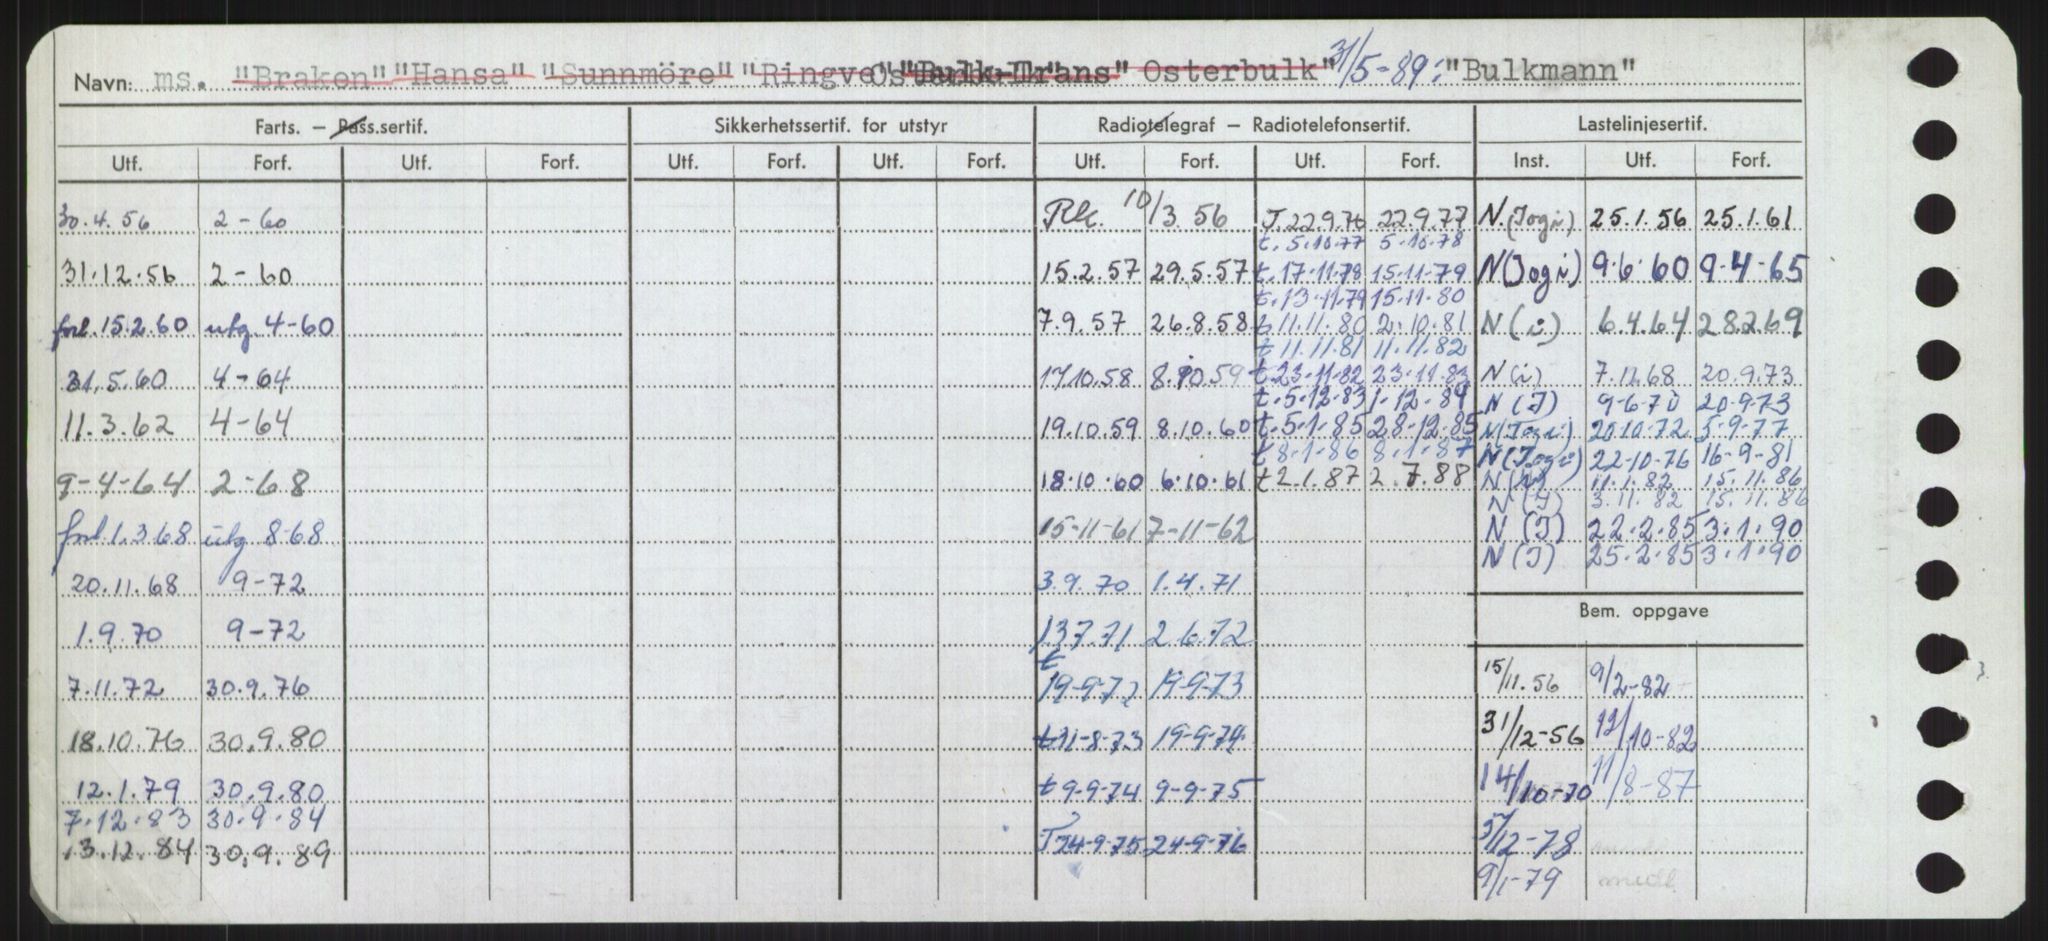 Navn: ms. "Braken" "Hansa" "Sunnmöre" "Ringve "Bulk-Trans" Osterbulk" 31/5-89: "Bulkmann"
Farts. — Pass.sertif. Sikkerhetssertif. for utstyr Radiotelegraf — Radiotelefonsertif. Lastelinjesertif.
Utf. Forf. Utf. Forf. Utf. Forf. Utf. Forf. Utf. Forf. Utf. Forf. Inst. Utf. Forf.
30.4.56 2-60 Rk. 10/3.56 T.22.9.76 22.9.77 N (Iogi) 25.1.56 25.1.61
t. 5.10.77 5.10.78
31.12.56 2-60 15.2.57 29.5.57 t. 17.11.78 15.11.79 N (Iogi) 9.6.60 9.4-65
t. 13.11.79 15.11.80
forl. 15.2.60 utg. 4-60 7.9.57 26.8.58 t 11.11.80 2.10.81 N (i) 6.4.64 28.2.69
t 11.11.81 11.11.82
31.5.60 4-64 17.10.58 8.10.59 t. 23.11.82 23.11.83 N (i) 7.11.68 20.9.73
t. 5.12.83 1.12.84 N (I) 9-6-70 20.9.73
11.3.62 4-64 19.10.59 8.10.60 t. 5.1.85 28.12.85 N (Iogi) 20.10.72 5-9-77
t 8-1-86 8.1-87 N (Iogi) 22-10-76 16-9-81
9-4-64 2-68 18.10.60 6.10.61 t 2.1.87 2.7.88 N 11.1.82 15.11.86
N (I) 3.11.82 15.11.86
forl 1.3.68 utg 8-68 15-11-61 7-11-62 N (I) 22.2.85 3.1.90
N (I) 25.2.85 3.1.90
20.11.68 9-72 3.9.70 1.4.71
Bem. oppgave
1.9.70 9-72 13.7.71 2.6.72
7.11.72 30.9.76 t 19-9-72 19-9-73 15/11.56 9/2-82
18.10.76 30.9.80 t 31-8-73 19-9-74 31/12-56 12/10-82
12.1.79 30.9.80 t 9-9-74 9-9-75 14/10-70 11/8-87
7.12.83 30.9.84
13.12.84 30.9.89 T 24-9-75 24-9-76 5/12-78
9/1-79